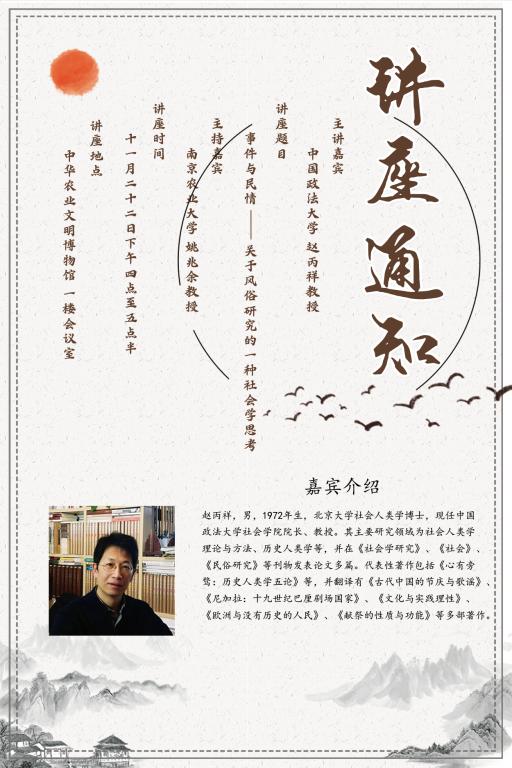 讲座通知
主讲嘉宾
中国政法大学 赵丙祥教授
讲座题目
事件与民情——关于风俗研究的一种社会学思考
主持嘉宾
南京农业大学 姚兆余教授
讲座时间
十一月二十二日下午四点至五点半
讲座地点
中华农业文明博物馆一楼会议室
嘉宾介绍
赵丙祥，男，1972年生，北京大学社会人类学博士，现任中国
政法大学社会学院院长、教授。其主要研究领域为社会人类学
理论与方法、历史人类学等，并在《社会学研究》、《社会》、
《民俗研究》等刊物发表论文多篇。代表性著作包括《心有旁
骛：历史人类学五论》等，并翻译有《古代中国的节庆与歌谣》、
《尼加拉：十九世纪巴厘剧场国家》、《文化与实践理性》、
《欧洲与没有历史的人民》、《献祭的性质与功能》等多部著作。